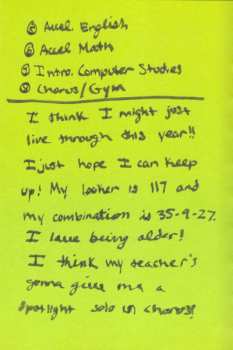 ⑤ Accel English
⑥ Accel Math
⑦ Intro. Computer Studies
⑧ Chorus/Gym
I think I might just
live through this year!!
I just hope I can keep
up! My locker is 117 and
my combination is 35-9-27.
I love being older!
I think my teacher's
gonna give me a
spotlight solo in chorus!